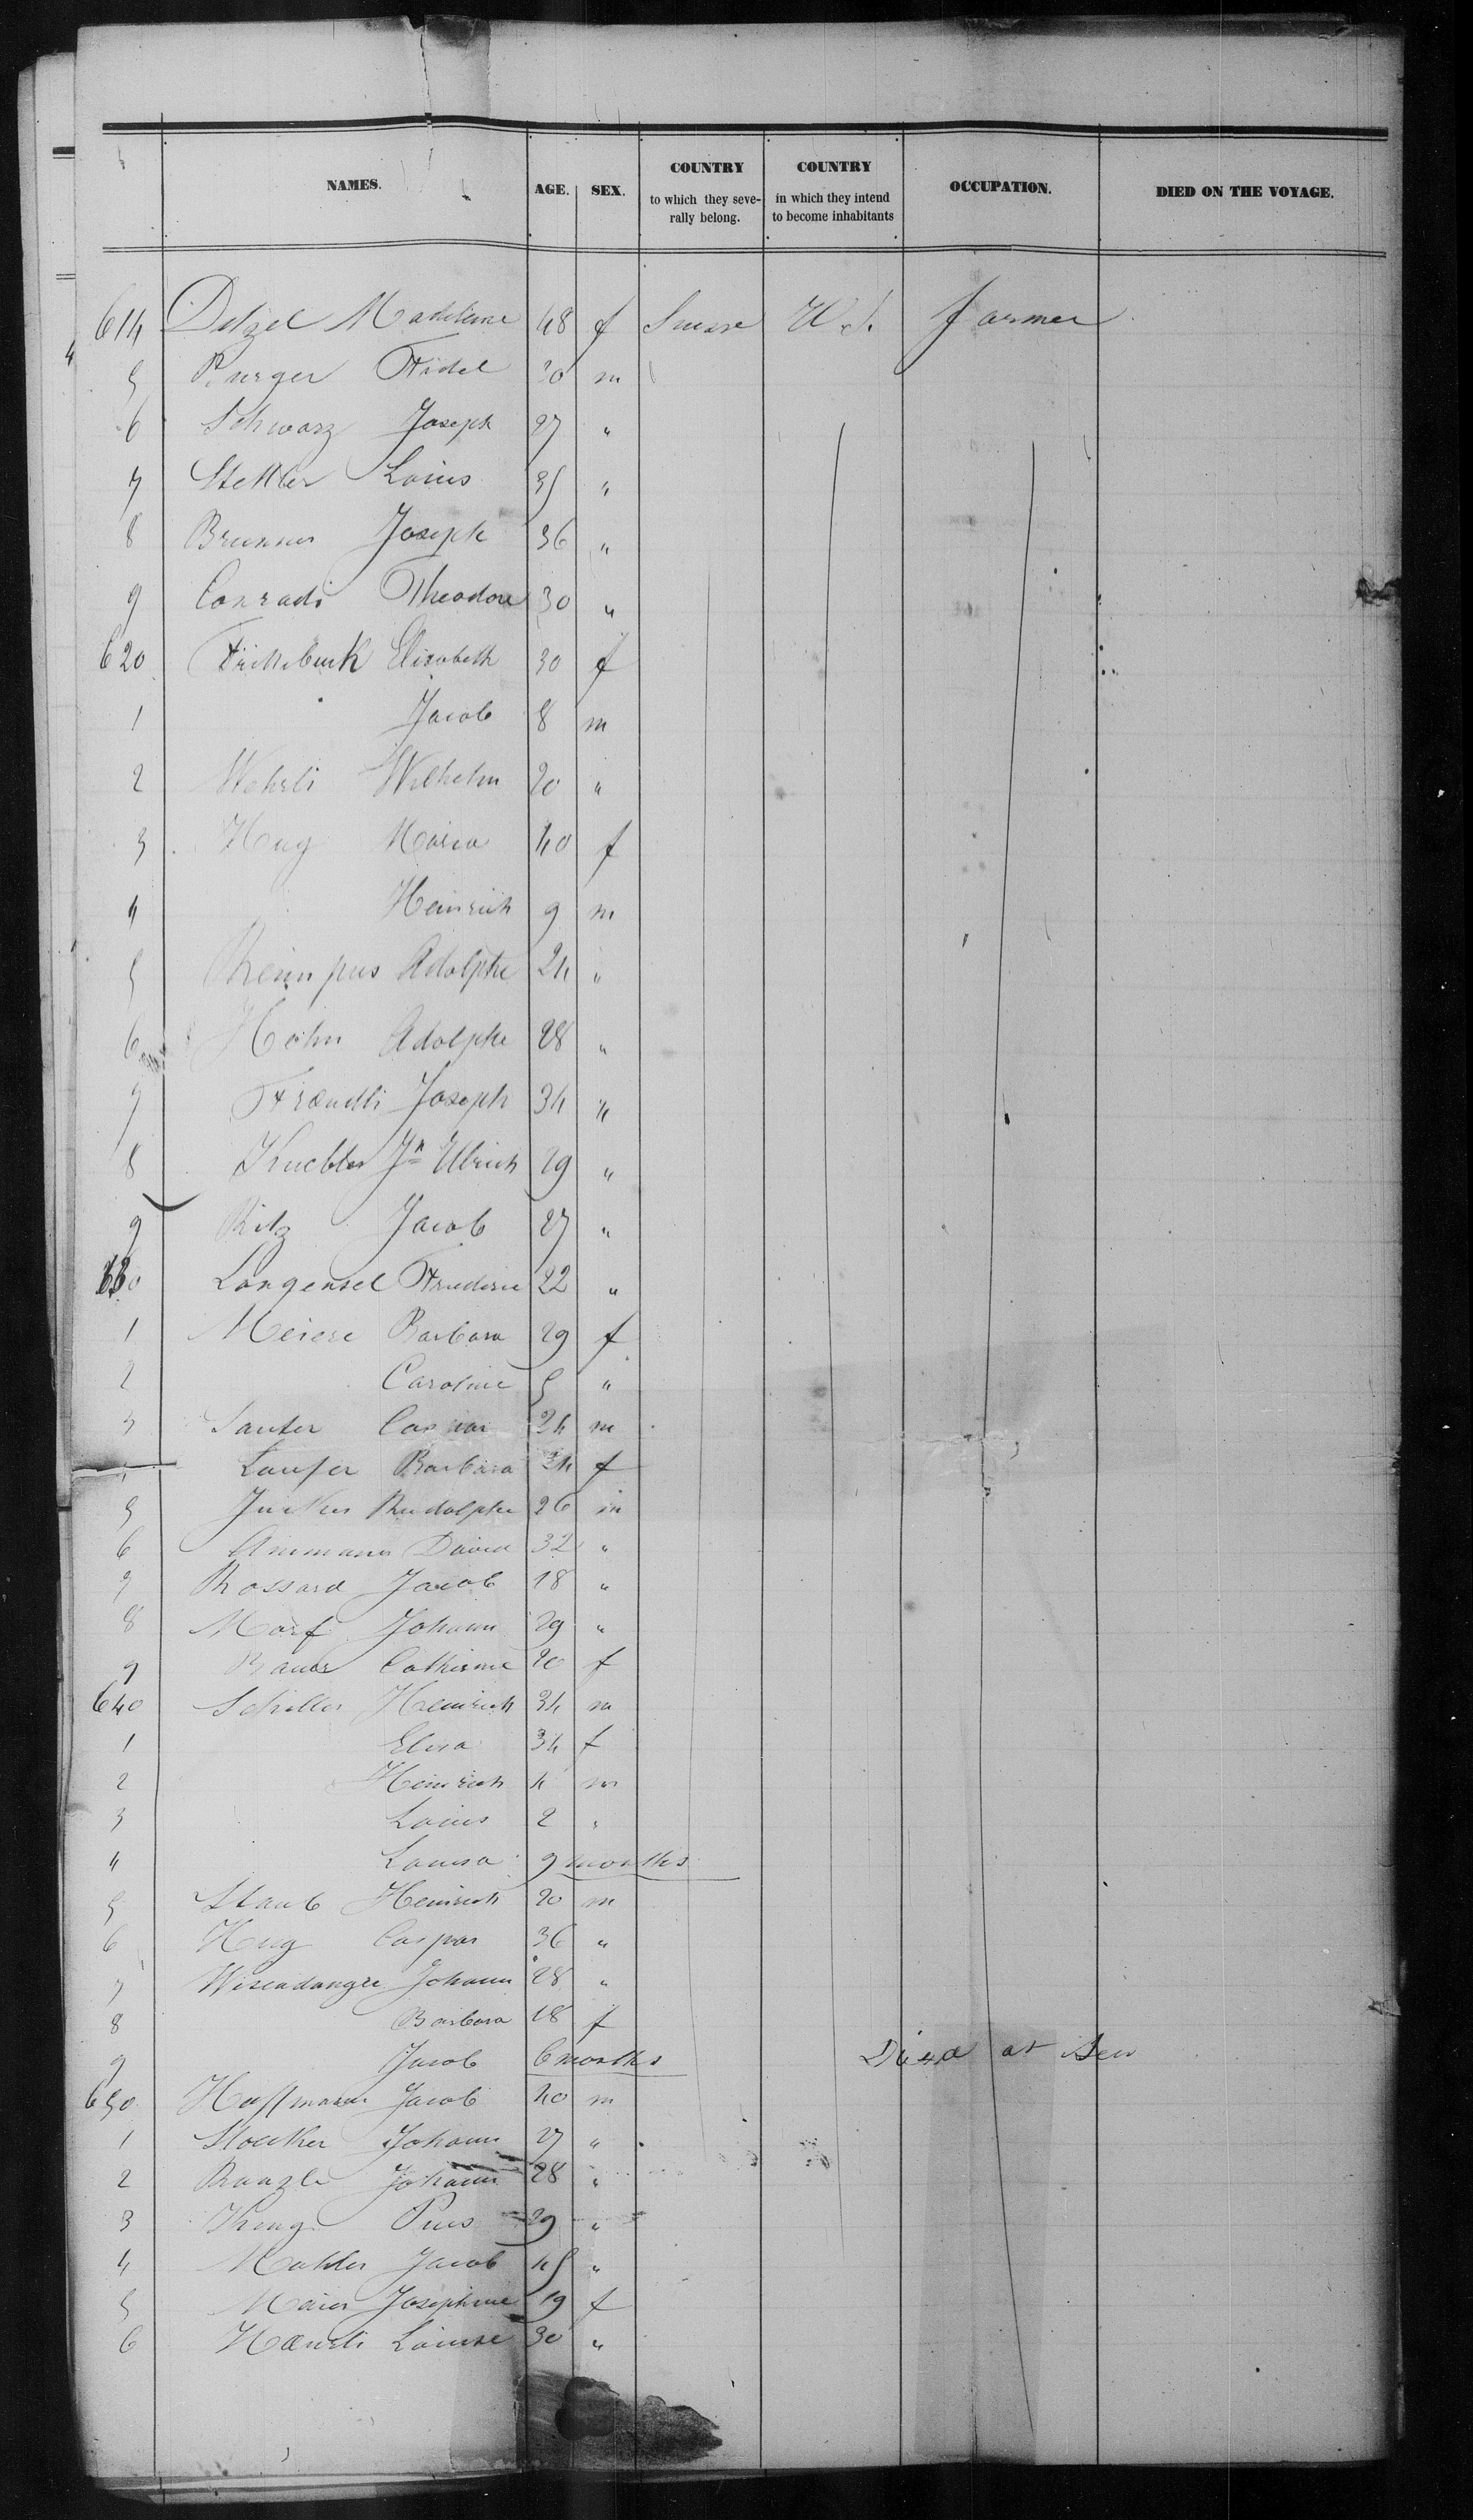 NAMES. AGE. SEX. COUNTRY to which they severally belong. COUNTRY in which they intend to become inhabitants OCCUPATION. DIED ON THE VOYAGE.
614 Detzel Madeleine 48 f Suisse U S. farmer
5 Burger Fidel 30 m
6 Schwarz Joseph 27 "
7 Stettler Louis 35 "
8 Brunner Joseph 36 "
9 Conradi Theodore 30 "
620 Elisabeth 30 f
1 Jacob 8 m
2 Wehrli Wilhelm 20 "
3 Hug Maria 40 f
4 Heinrich 9 m
5 Adolphe 24 "
6 Höhn Adolphe 28 "
7 Fraendli Joseph 34 "
8 Kuebler Jn Ulrich 29 "
9 Ritz Jacob 27 "
630 Langensel Frederic 22 "
1 Meiere Barbara 29 f
2 Caroline 5 "
3 Sauter Caspar 24 m
Laufer Barbara 24 f
5 Junker Rudolphe 26 m
6 Ammann David 32 "
7 Rossard Jacob 18 "
8 Morf Johann 29 "
9 Bauer Catherine 20 f
640 Schiller Heinrich 34 m
1 Elisa 34 f
2 Heinrich 4 m
3 Louis 2 "
4 Louisa 9 months
5 Staub Heinrich 20 m
6 Hug Caspar 36 "
7 Wisendanger Johann 28 "
8 Barbara 18 f
9 Jacob 6 months Died at Sea
650 Hoffmann Jacob 40 m
1 Stocker Johann 27 "
2 Johann 28 "
3 Pius 29 "
4 Mahler Jacob 45 "
5 Maier Josephine 19 f
6 Haensli Louise 30 "